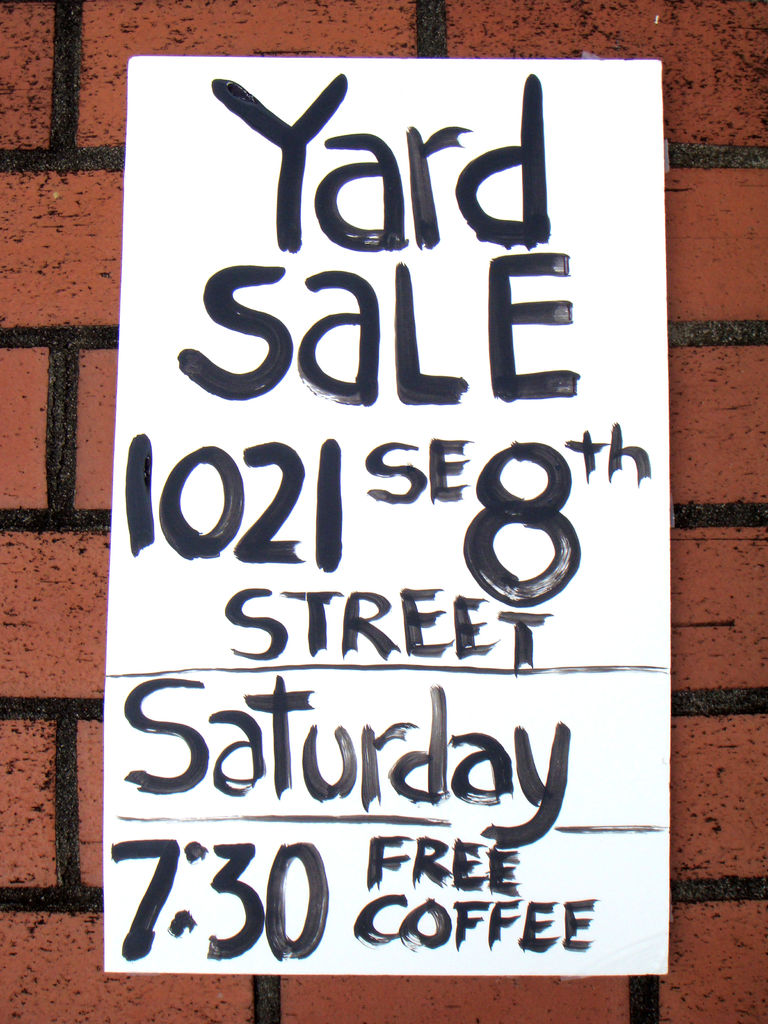 Yard
SaLE
1021 SE 8th
STREET
Saturday
7:30 FREE
COFFEE